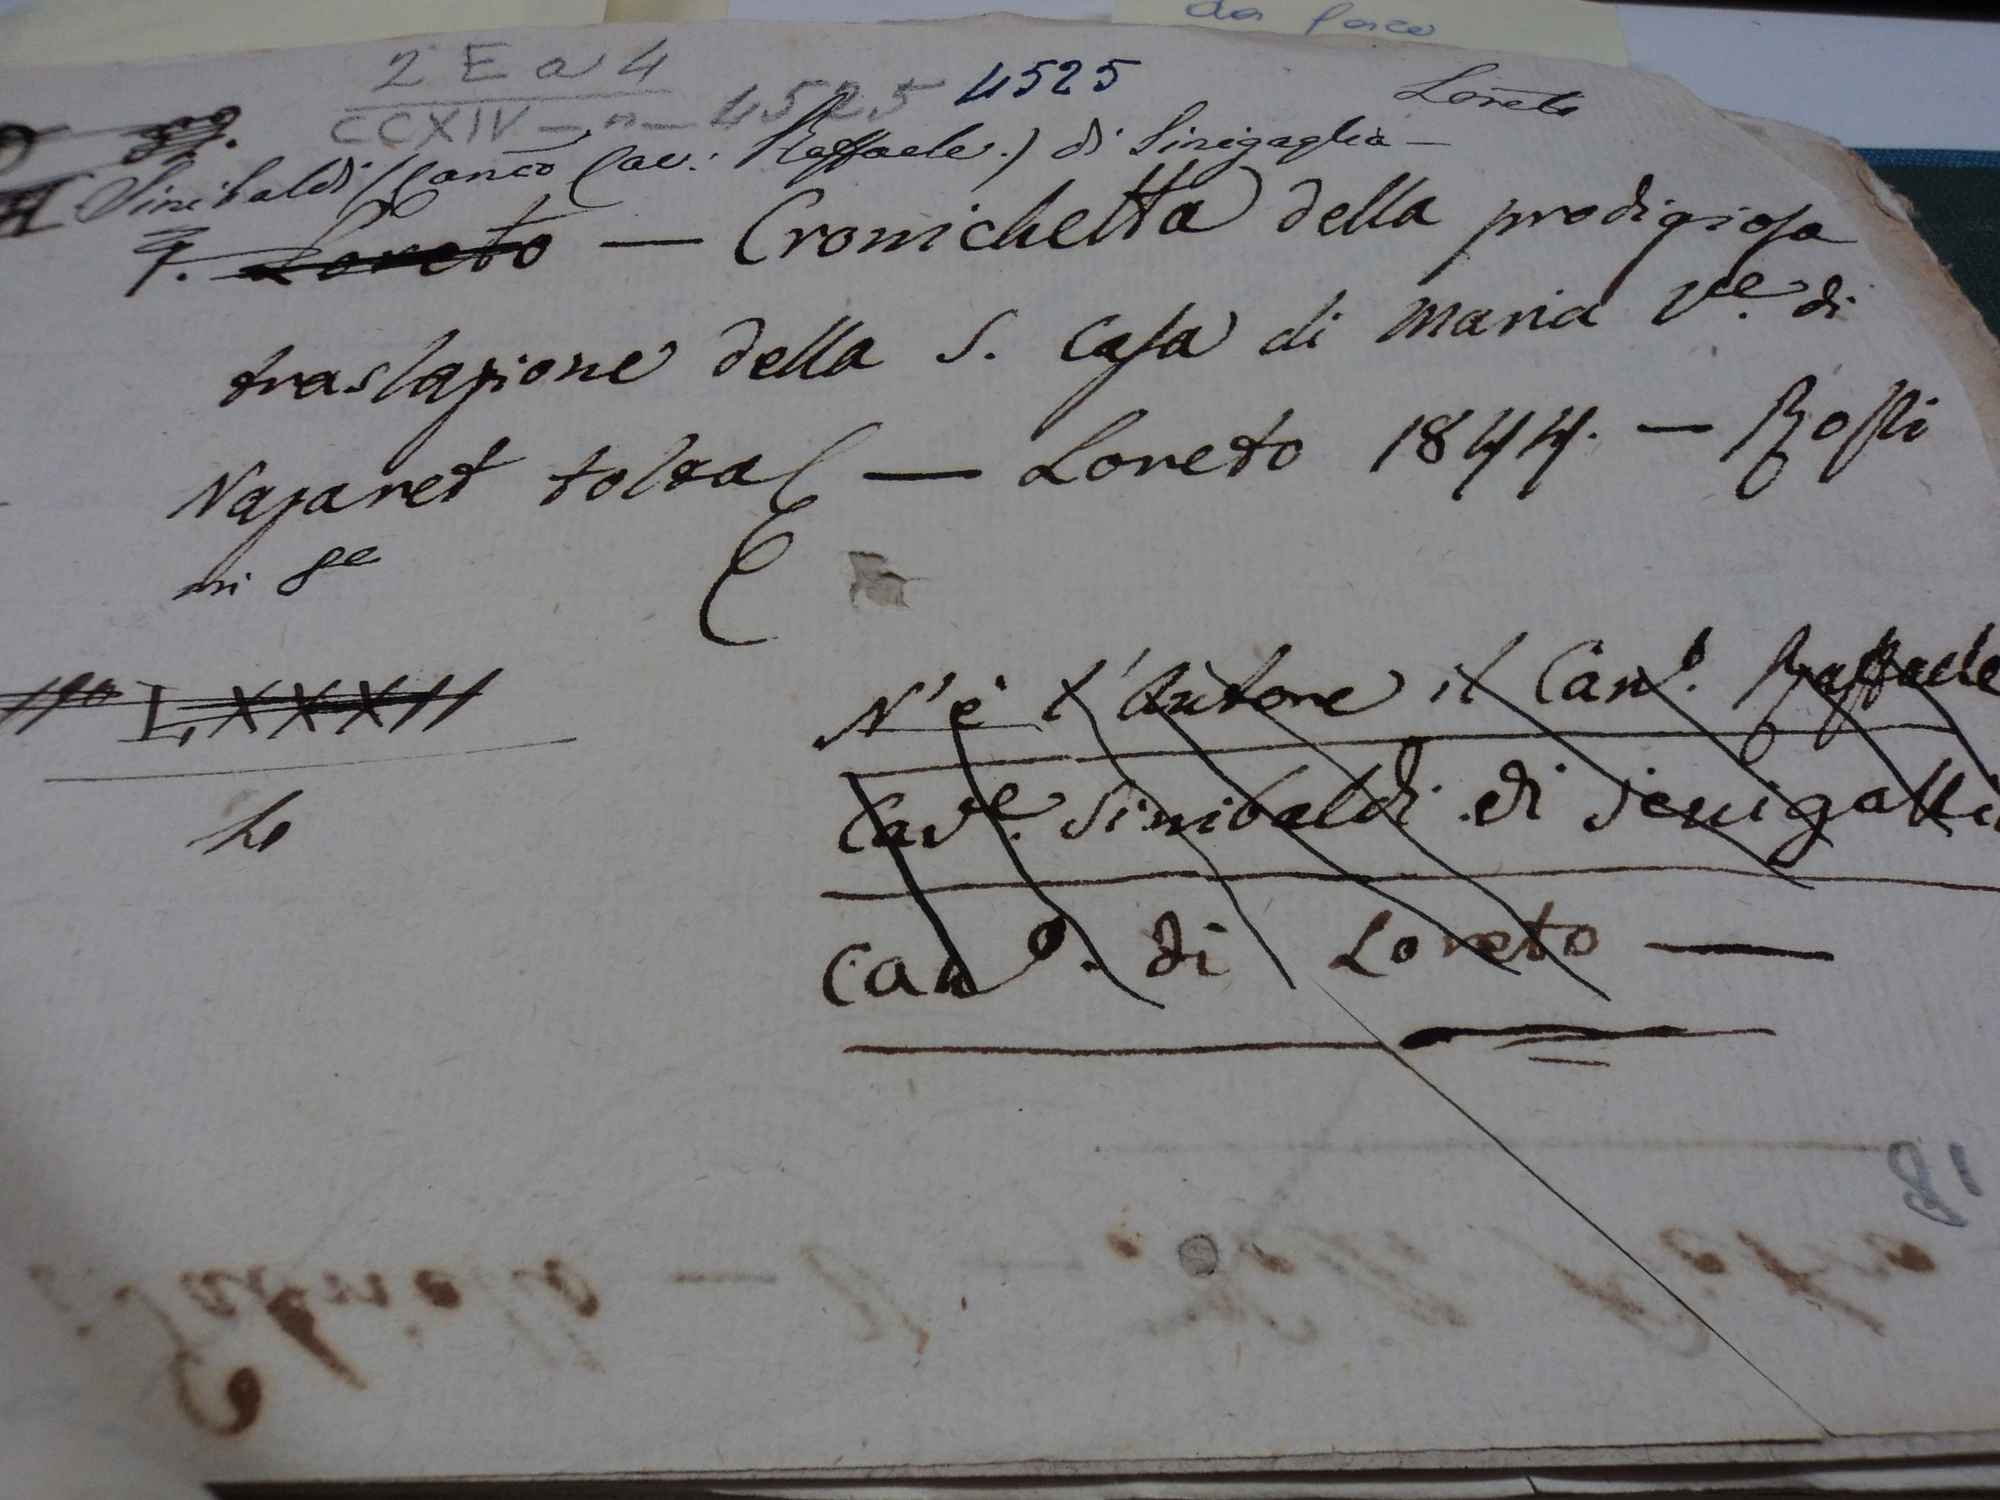 da
2 E a 4
CCXIV - n - 4525 4525
Loreto
Sinibaldi (Canco Cav. Raffaele.) di Sinigaglia -
7. Loreto — Cronichetta della prodigiosa
traslazione della S. Casa di Maria Ve. di
Nazaret tolta — Loreto 1844. — Rossi
in 8e
LXXXII
N'è l'Autore il Cano. Raffaele
Cave. Sinibaldi di Senigallia
Cano. di Loreto —
18